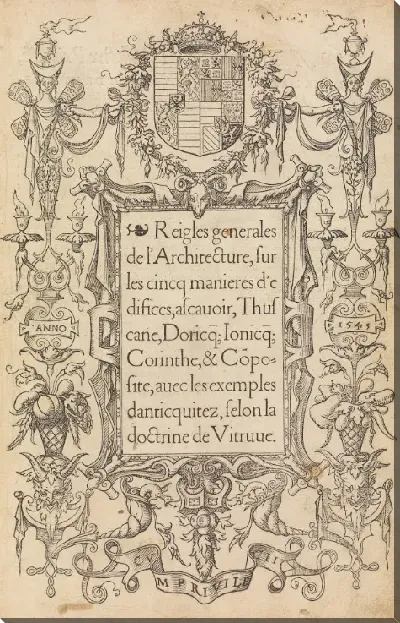 Reigles generales
de l'Architecture, sur
les cincq manieres d'e
difices, ascauoir, Thus
cane, Doricq̃, Ionicq̃,
Corinthe, & Cōpo-
site, auec les exemples
danticquitez, selon la
doctrine de Vitruue.
ANNO
1545